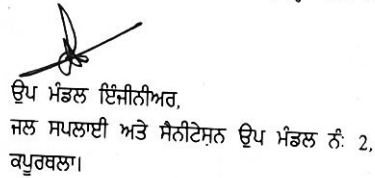 ਉਪ ਮੰਡਲ ਇੰਜੀਨੀਅਰ,
ਜਲ ਸਪਲਾਈ ਅਤੇ ਸੈਨੀਟੇਸ਼ਨ ਉਪ ਮੰਡਲ ਨੰ: 2,
ਕਪੂਰਥਲਾ।